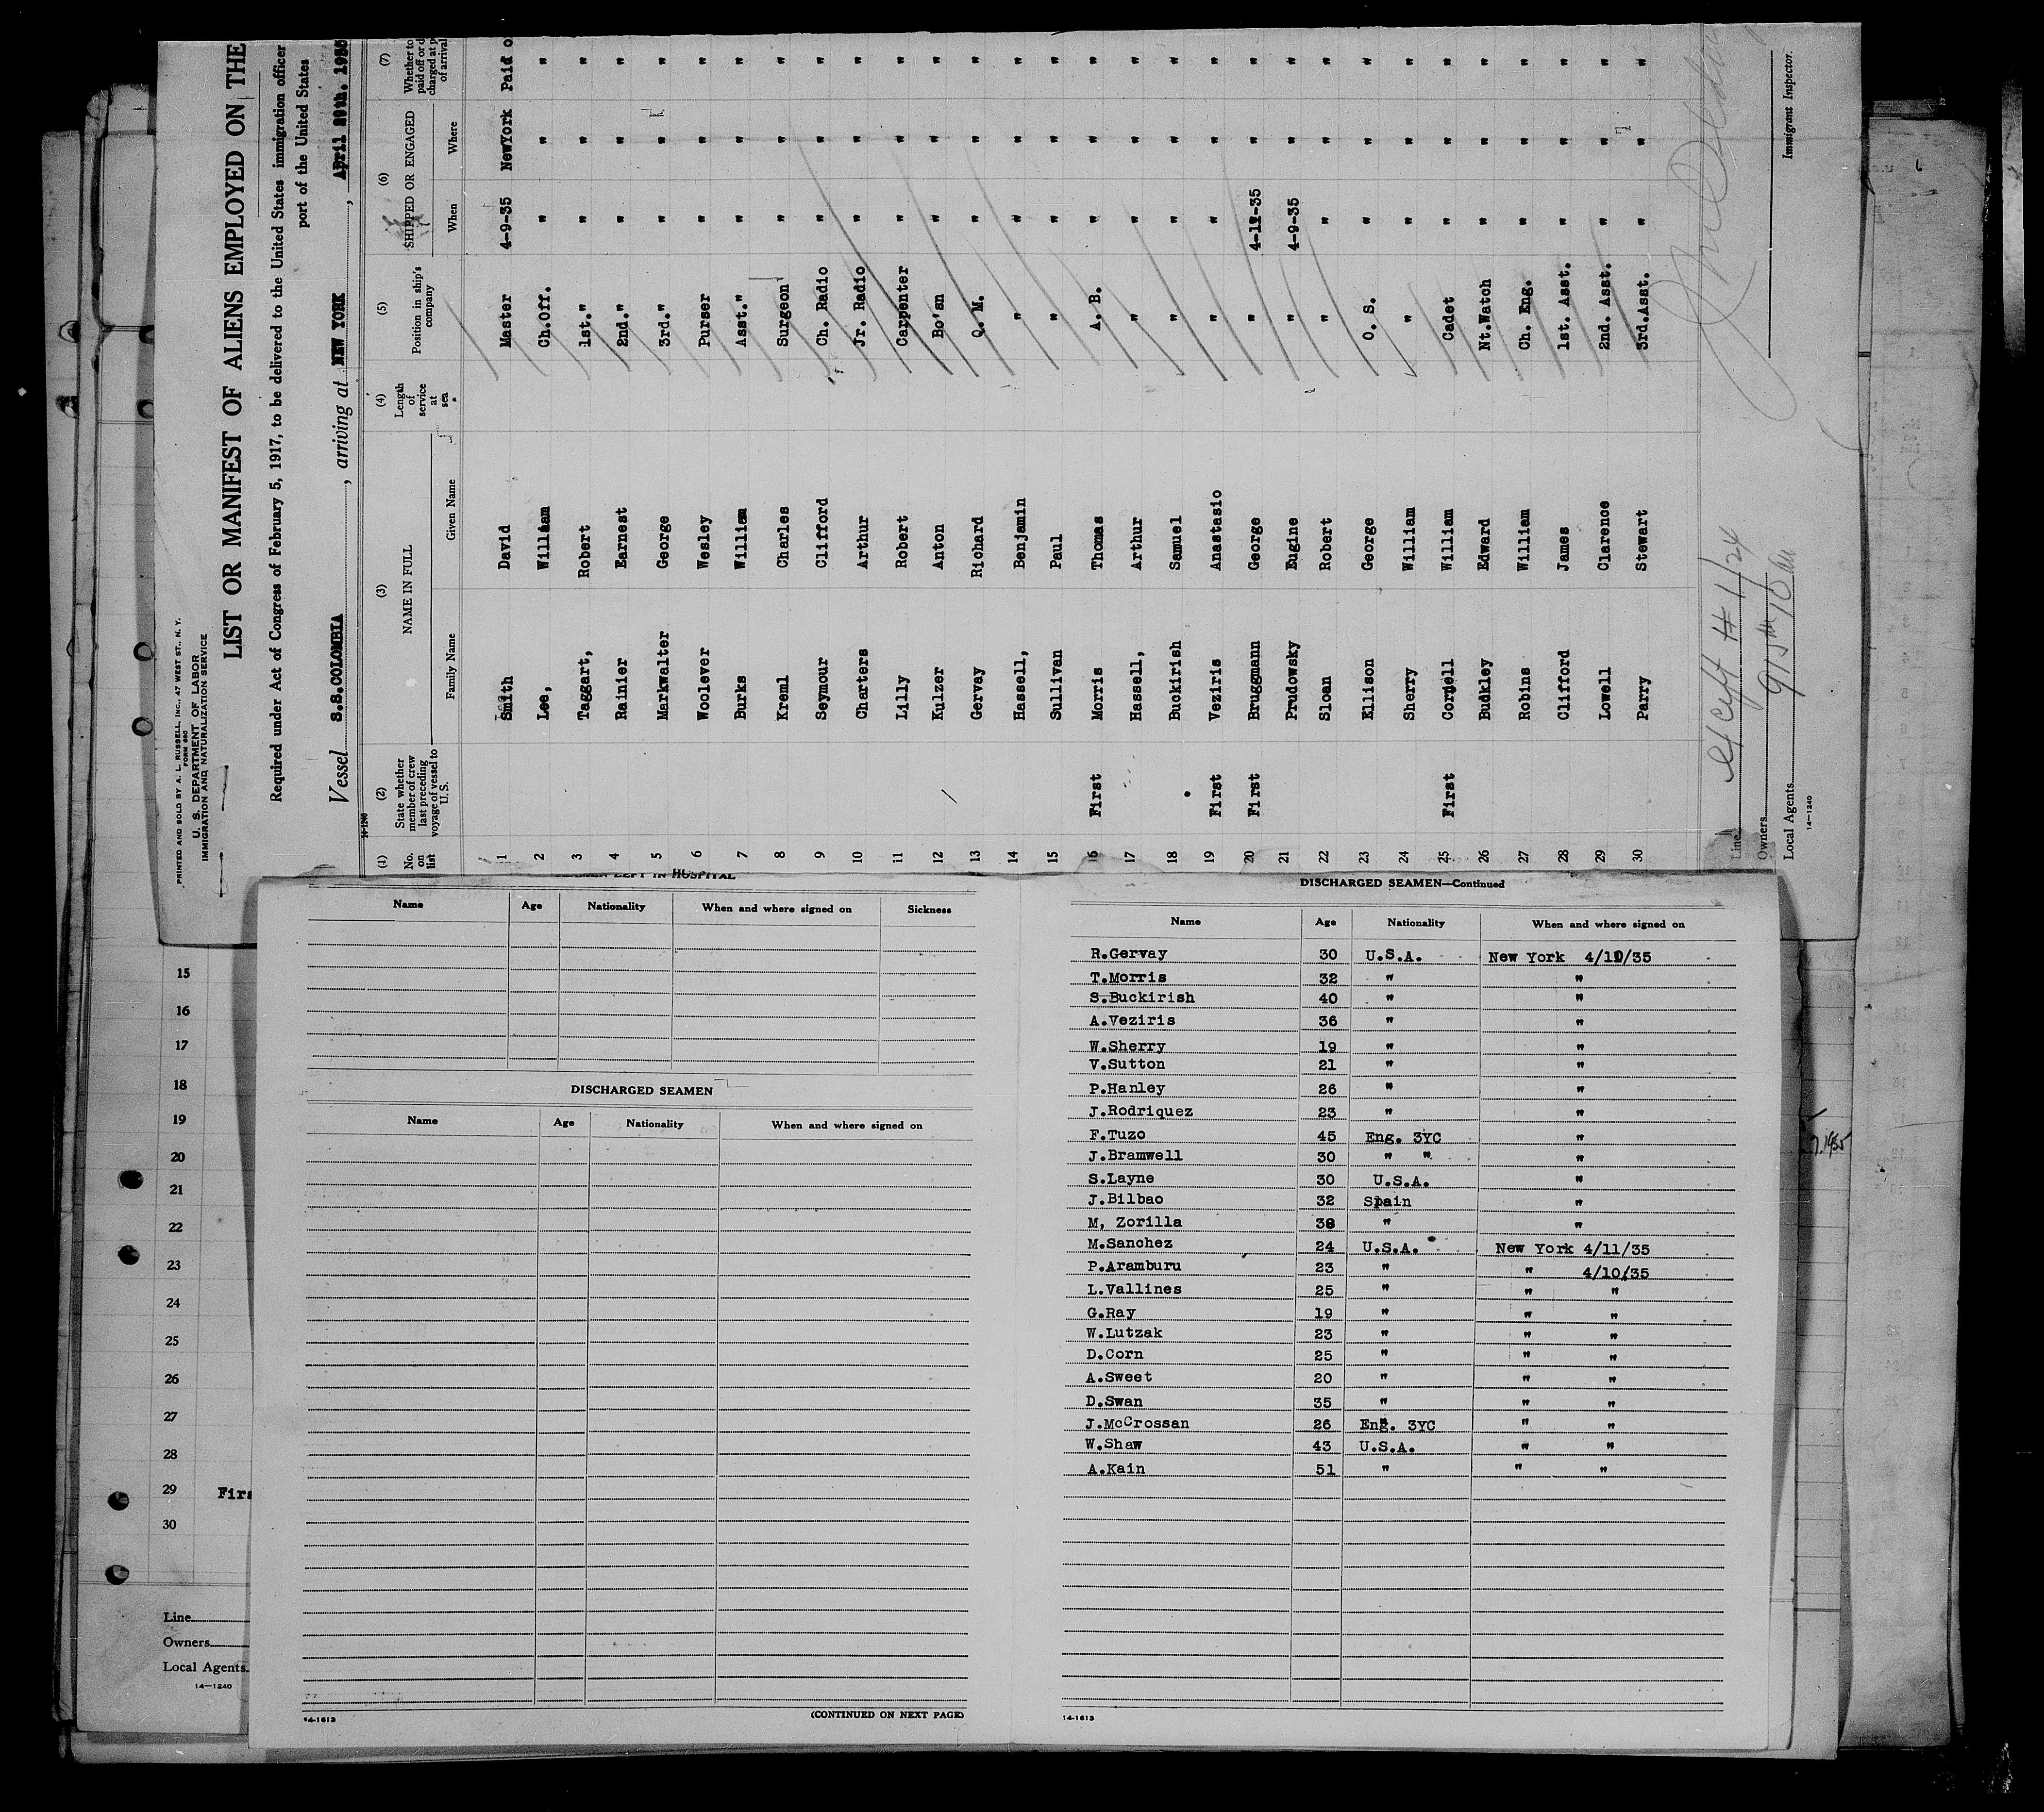 PRINTED AND SOLD BY A. L. RUSSELL, INC., 47 WEST ST., N. Y.
FORM 680
U. S. DEPARTMENT OF LABOR
IMMIGRATION AND NATURALIZATION SERVICE
LIST OR MANIFEST OF ALIENS EMPLOYED ON THE
Required under Act of Congress of February 5, 1917, to be delivered to the United States immigration officer
port of the United States
Vessel S.S.COLOMBIA, arriving at NEW YORK, April 29th. 1935
14-1240
(1) (2) (3) (4) (5) (6) (7)
No. on list
State whether member of crew last preceding voyage of vessel to U. S.
NAME IN FULL
Family Name Given Name
Length of service at sea
Position in ship's company
SHIPPED OR ENGAGED
When Where
Whether to paid off or d charged at p of arrival
1 Smith David Master 4-9-35 NewYork Paid o
2 Lee, William Ch.Off. " " "
3 Taggart, Robert 1st." " " "
4 Rainier Earnest 2nd." " " "
5 Markwalter George 3rd." " " "
6 Woolever Wesley Purser " " "
7 Burks William Asst." " " "
8 Kreml Charles Surgeon " " "
9 Seymour Clifford Ch. Radio " " "
10 Charters Arthur Jr. Radio " " "
11 Lilly Robert Carpenter " " "
12 Kulzer Anton Bo'sn " " "
13 Gervey Richard Q. M. " " "
14 Hassell, Benjamin " " " "
15 Sullivan Paul " " " "
16 First Morris Thomas A. B. " " "
17 Hassell, Arthur " " " "
18 Buckirish Samuel " " " "
19 First Veziris Anastasio " " " "
20 First Bruggmann George " 4-12-35 " "
21 Prudowsky Eugine " 4-9-35 " "
22 Sloan Robert " " " "
23 Ellison George O. S. " " "
24 Sherry William " " " "
25 First Cornell William Cadet " " "
26 Buckley Edward Nt.Watch " " "
27 Robins William Ch. Eng. " " "
28 Clifford James 1st. Asst. " " "
29 Lowell Clarence 2nd. Asst. " " "
30 Parry Stewart 3rd.Asst. " " "
Line
Owners
Local Agents
14-1240
Immigrant Inspector.
SEAMEN LEFT IN HOSPITAL
Name Age Nationality When and where signed on Sickness
DISCHARGED SEAMEN
Name Age Nationality When and where signed on
(CONTINUED ON NEXT PAGE)
14-1613
DISCHARGED SEAMEN—Continued
Name Age Nationality When and where signed on
R.Gervay 30 U.S.A. New York 4/10/35
T.Morris 32 " "
S.Buckirish 40 " "
A.Veziris 36 " "
W.Sherry 19 " "
V.Sutton 21 " "
P.Hanley 26 " "
J.Rodriquez 23 " "
F.Tuzo 45 Eng. 3YC "
J.Bramwell 30 " " "
S.Layne 30 U.S.A. "
J.Bilbao 32 Spain "
M, Zorilla 38 " "
M.Sanchez 24 U.S.A. New York 4/11/35
P.Aramburu 23 " " 4/10/35
L.Vallines 25 " " "
G.Ray 19 " " "
W.Lutzak 23 " " "
D.Corn 25 " " "
A.Sweet 20 " " "
D.Swan 35 " " "
J.McCrossan 26 Eng. 3YC " "
W.Shaw 43 U.S.A. " "
A.Kain 51 " " "
14-1613
15
16
17
18
19
20
21
22
23
24
25
26
27
28
29 Firs
30
Line
Owners
Local Agents
14-1240